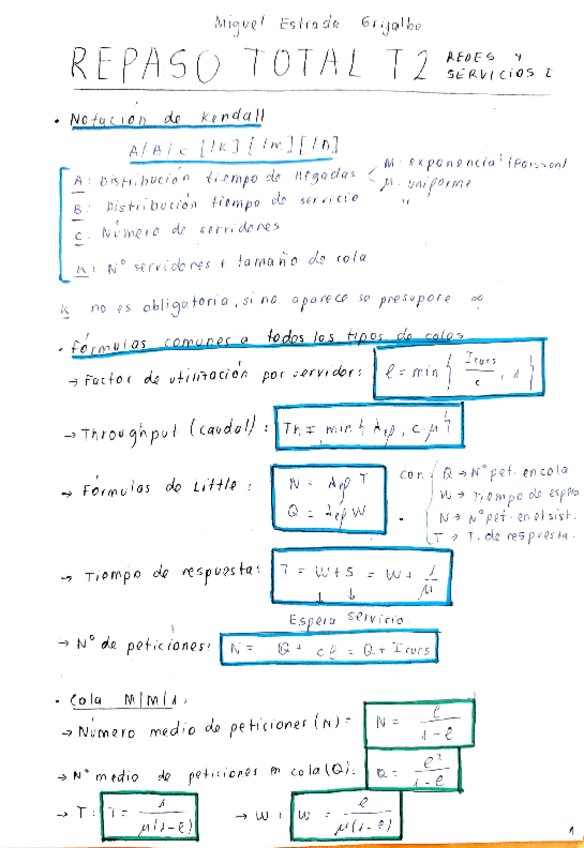 Miguel Estrada Grijalbo
REPASO TOTAL T2 REDES Y SERVICIOS I
• Notación de Kendall
A/B/c [/k] [/m] [/n]
A: Distribución tiempo de llegadas
M: exponencial (Poisson)
μ: uniforme
B: Distribución tiempo de servicio "
C: Número de servidores
K: Nº servidores + tamaño de cola
k no es obligatoria, si no aparece se presupone ∞
• Fórmulas comunes a todos los tipos de colas
→ Factor de utilización por servidor: ρ = min { Icurs / c , 1 }
→ Throughput (caudal): Th = min { λep, c·μ }
→ Fórmulas de Little: N = λep T
Q = λep W
con: Q → Nº pet. en cola
W → Tiempo de espera
N → Nº pet. en el sist.
T → T. de respuesta.
→ Tiempo de respuesta: T = W + S = W + 1/μ
Espera servicio
→ Nº de peticiones: N = Q + cρ = Q + Icurs
• Cola M/M/1:
→ Número medio de peticiones (N) = N = ρ / 1-ρ
→ Nº medio de peticiones en cola (Q): Q = ρ² / 1-ρ
→ T: T = 1 / μ(1-ρ) → W: W = ρ / μ(1-ρ)
1